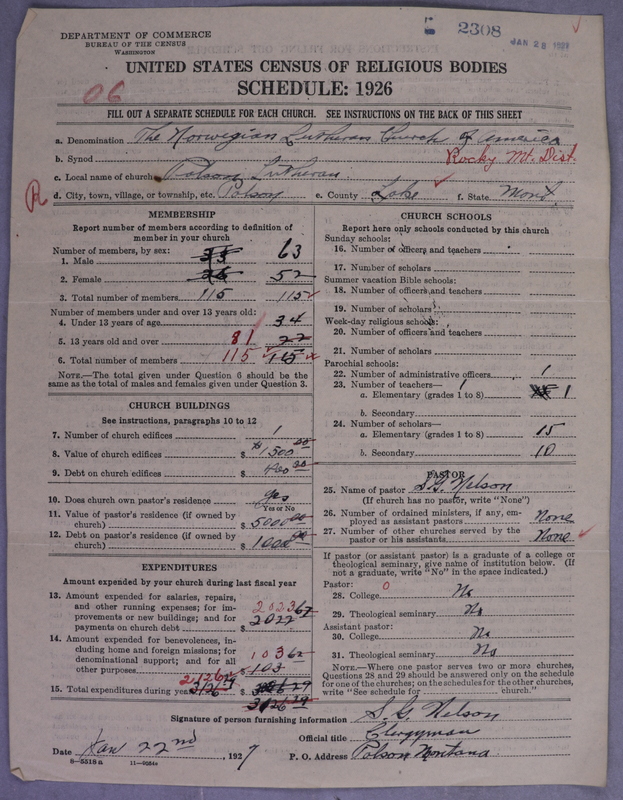 5 2308
JAN 28 1927
DEPARTMENT OF COMMERCE
BUREAU OF THE CENSUS
WASHINGTON
UNITED STATES CENSUS OF RELIGIOUS BODIES
SCHEDULE: 1926
06
FILL OUT A SEPARATE SCHEDULE FOR EACH CHURCH. SEE INSTRUCTIONS ON THE BACK OF THIS SHEET
a. Denomination The Norwegian Lutheran Church of America
b. Synod Rocky Mt. Dist.
c. Local name of church Polson Lutheran
R d. City, town, village, or township, etc. Polson e. County Lake f. State Mont
MEMBERSHIP
Report number of members according to definition of member in your church
Number of members, by sex:
1. Male 63
2. Female 52
3. Total number of members 115 115
Number of members under and over 13 years old:
4. Under 13 years of age 34
5. 13 years old and over 81 22
6. Total number of members 115 115
NOTE.—The total given under Question 6 should be the same as the total of males and females given under Question 3.
CHURCH BUILDINGS
See instructions, paragraphs 10 to 12
7. Number of church edifices 1
8. Value of church edifices $ 1500 00
9. Debt on church edifices $ 400 00
10. Does church own pastor's residence Yes
Yes or No
11. Value of pastor's residence (if owned by church) $ 5000 00
12. Debt on pastor's residence (if owned by church) $ 1000 00
EXPENDITURES
Amount expended by your church during last fiscal year
13. Amount expended for salaries, repairs, and other running expenses; for improvements or new buildings; and for payments on church debt $ 2023 67 2022
14. Amount expended for benevolences, including home and foreign missions; for denominational support; and for all other purposes $ 103 62 103
15. Total expenditures during year $ 2126 29
CHURCH SCHOOLS
Report here only schools conducted by this church
Sunday schools:
16. Number of officers and teachers
17. Number of scholars
Summer vacation Bible schools:
18. Number of officers and teachers
19. Number of scholars
Week-day religious schools:
20. Number of officers and teachers
21. Number of scholars
Parochial schools:
22. Number of administrative officers 1
23. Number of teachers— 1
a. Elementary (grades 1 to 8) 1
b. Secondary
24. Number of scholars—
a. Elementary (grades 1 to 8) 15
b. Secondary 10
PASTOR
25. Name of pastor S. G. Nelson
(If church has no pastor, write "None")
26. Number of ordained ministers, if any, employed as assistant pastors None
27. Number of other churches served by the pastor or his assistants None
If pastor (or assistant pastor) is a graduate of a college or theological seminary, give name of institution below. (If not a graduate, write "No" in the space indicated.)
Pastor:
28. College 0 No
29. Theological seminary No
Assistant pastor:
30. College No
31. Theological seminary No
NOTE.—Where one pastor serves two or more churches, Questions 28 and 29 should be answered only on the schedule for one of the churches; on the schedules for the other churches, write "See schedule for church."
Signature of person furnishing information S. G. Nelson
Official title Clergyman
Date Jan 22nd, 1927 P. O. Address Polson Montana
8—5518 a 11—9054